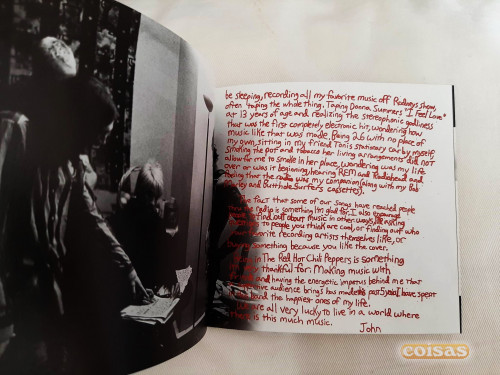 be sleeping, recording all my favorite music off Rodneys show,
often taping the whole thing. Taping Donna Summers "I Feel Love"
at 13 years of age and realizing the stereophonic godliness
that was the first completely electronic hit, wondering how
music like that was made. Being 26 with no place of
my own, sitting in my friend Toni's stationary car by myself
smoking the pot and tobacco her living arrangements did not
allow for me to smoke in her place, wondering was my life
over or was it beginning, hearing REM and Radiohead and
feeling that the radio was my companion (along with my Bob
Marley and Butthole Surfers cassettes).
The fact that some of our songs have reached people
radio is something Im glad for. I also encourage
people to find out about music in other ways, like asking
to people you think are cool, or finding out who
favorite recording artists themselves like, or
buying something because you like the cover.
Being in The Red Hot Chili Peppers is something
very thankful for. Making music with
and having the energetic impetus behind me that
audience brings has made this past 5 years I have spent
band the happiest ones of my life.
We are all very lucky to live in a world where
there is this much music.
John
coisas